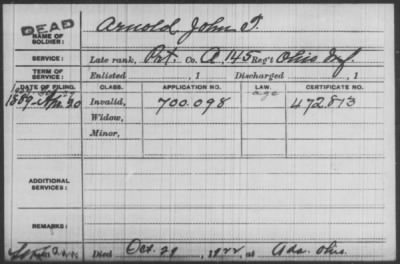 DEAD
NAME OF SOLDIER:
Arnold, John T.
SERVICE:
Late rank, Pvt. Co. A, 145 Reg't Ohio Inf.
TERM OF SERVICE:
Enlisted , 1 Discharged , 1
DATE OF FILING. CLASS. APPLICATION NO. LAW. CERTIFICATE NO.
age
1889 Apr. 20 Invalid, 700.098 472.813
Widow,
Minor,
ADDITIONAL SERVICES:
REMARKS:
Died Oct. 29, 1922, at Ada, Ohio.